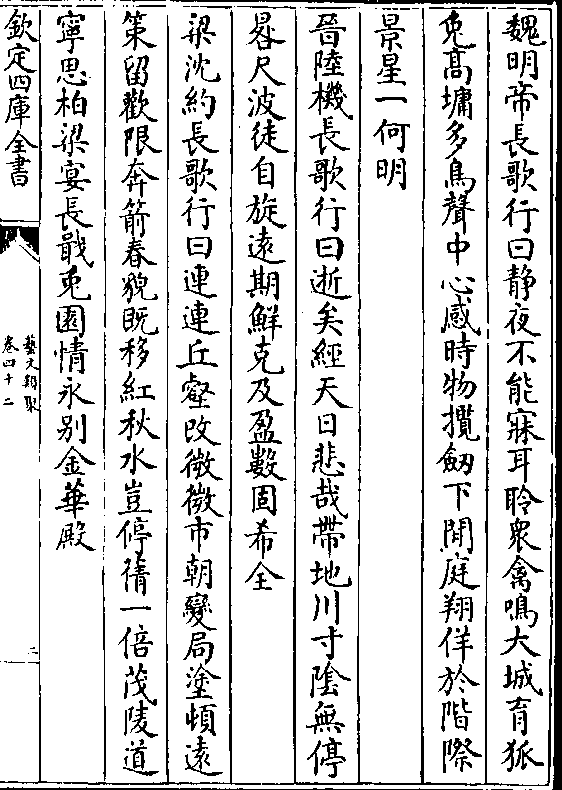 魏明帝長歌行曰静夜不能寐耳聆衆禽鳴大城育狐
兔髙墉多鳥聲中心感時物攬劒下閒庭翔佯於階際
景星一何明
晉陸機長歌行曰逝矣經天日悲哉帶地川寸陰無停
晷尺波徒自旋遠期鮮克及盈數固希全
梁沈約長歌行曰連連丘壑改微微市朝變局塗頓遠
策留歡限奔箭春貌既移紅秋水豈停蒨一倍茂陵道
寧思柏梁宴長戢兎園情永别金華殿
欽定四庫全書
藝文類聚
卷四十二
二